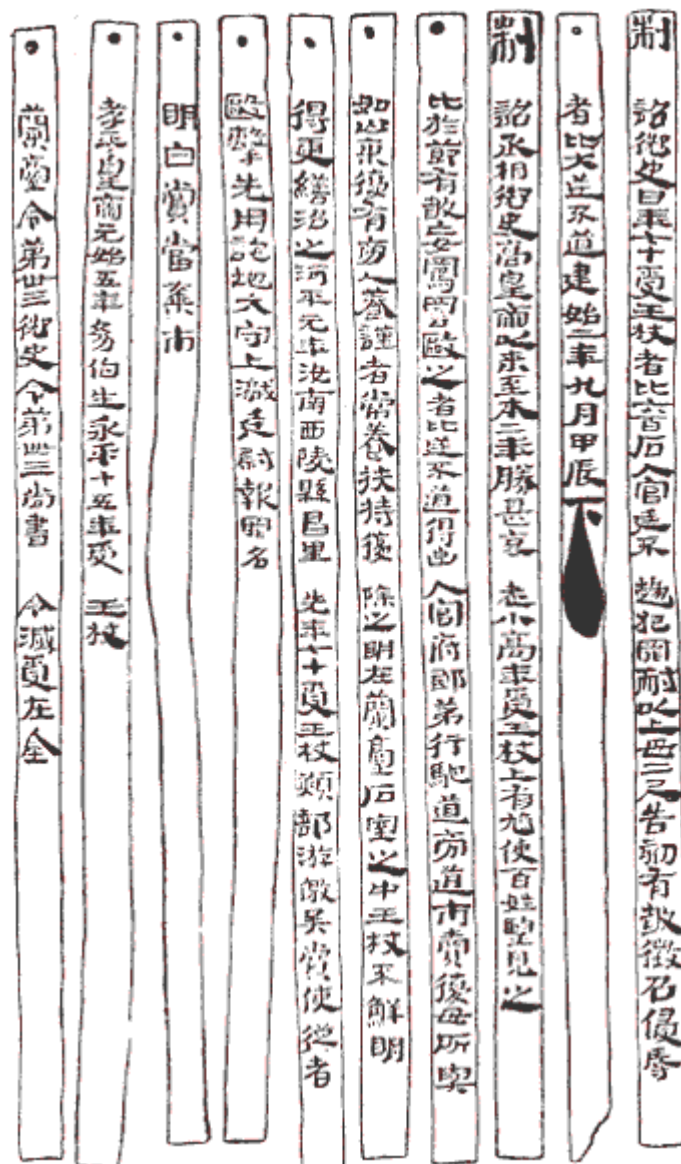 制 詔御史曰年七十受王杖者比六百石入官廷不 趨犯罪耐以上毋二尺告劾有敢徵召侵辱
者比大逆不道建始二年九月甲辰下
制 詔丞相御史高皇帝以來至本二年勝甚哀 老小高年受王杖上有鳩使百姓望見之
比於節有敢妄罵詈毆之者比逆不道得出 入官府郎第行馳道旁道市賣復毋所與
如山東復有旁人養謹者常養扶持復 除之明在蘭臺石室之中王杖不鮮明
得更繕治之河平元年汝南西陵縣昌里 先年七十受王杖熲部游徼吳賞使從者
毆擊先用詫地大守上讞廷尉報罪名
明白賞當棄市
孝平皇帝元始五年幼伯生永平十五年受 王杖
蘭臺令第卅三御史令第卌三尚書 令滅受在金